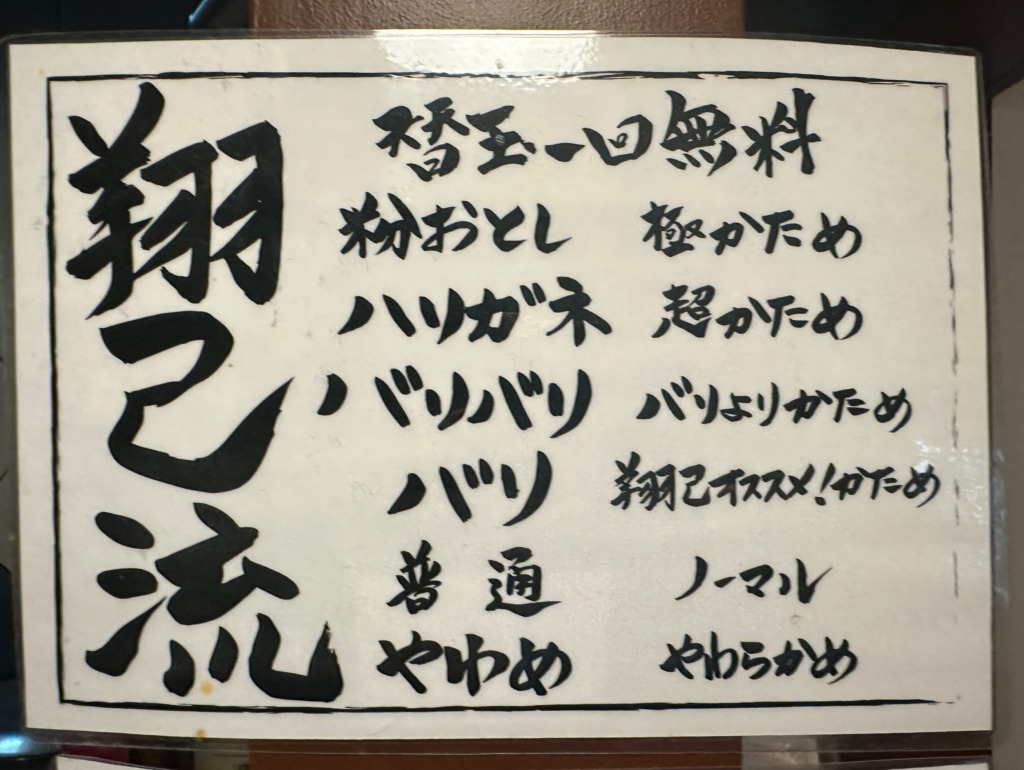 翔己流
替玉一回無料
粉おとし 極かため
ハリガネ 超かため
バリバリ バリよりかため
バリ 翔己オススメ!かため
普通 ノーマル
やわめ やわらかめ